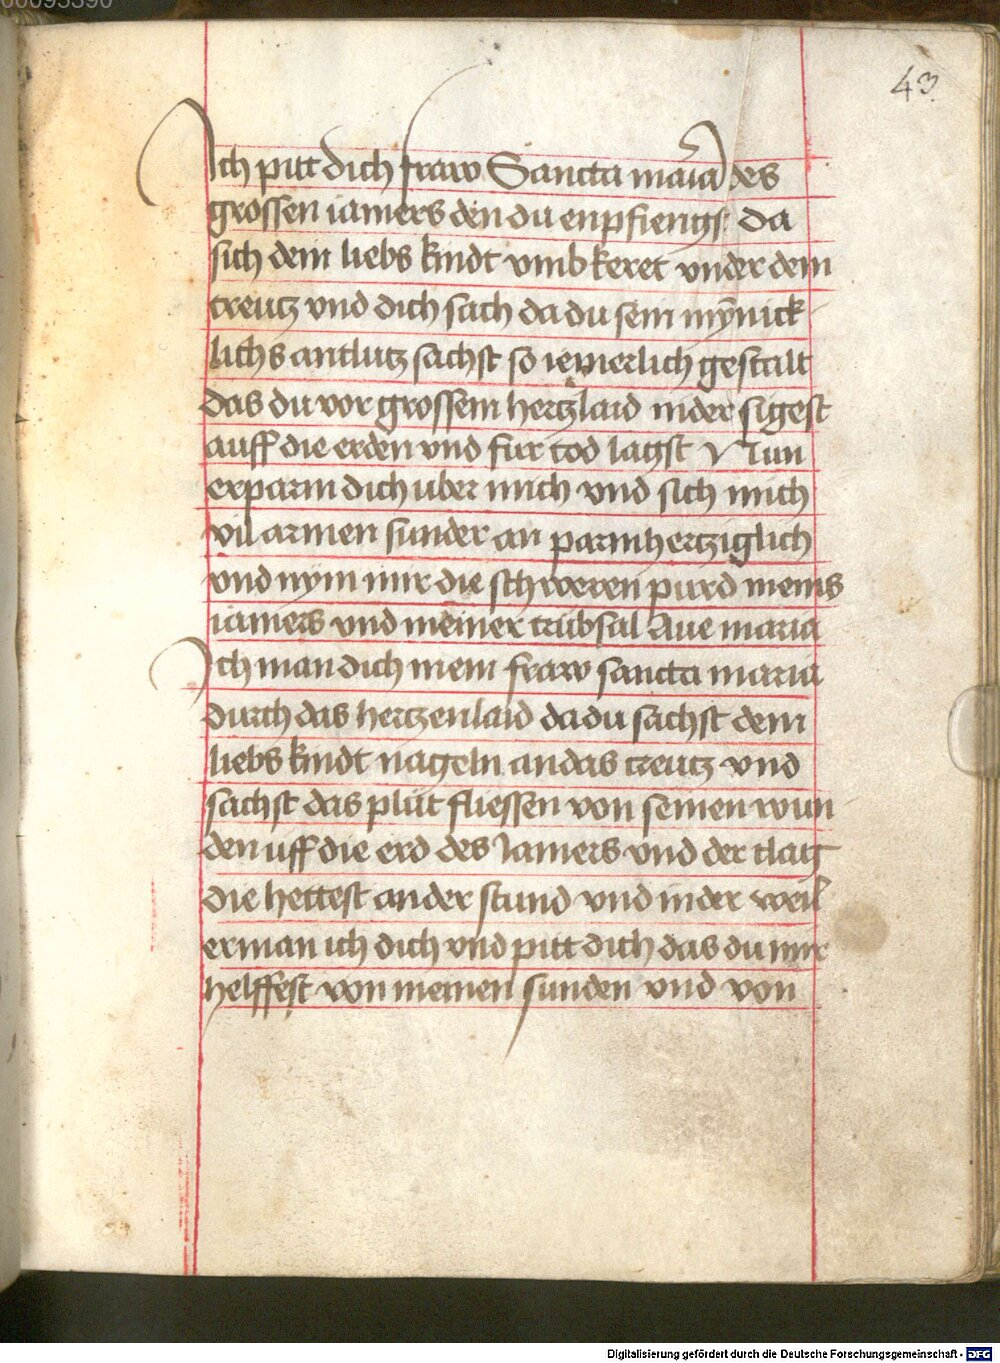 43
Ich pitt dich fraw Sancta maria des
grossen iamers den du enpfiengst da
sich dein liebs kindt vmb keret vnder dem
creutz vnd dich sach da du sein mÿnick
lichs antlutz sachst so iemerlich gestalt
das du vor grossem hertzlaid nider sigest
auff die erden vnd fur tod lagst Nun
erparm dich uber mich vnd sich mich
vil armen sunder an parmhertziglich
vnd nym mir die schweren purd meins
iamers vnd meiner trubsal Aue maria
Ich man dich mein fraw sancta maria
durch das hertzenlaid da du sachst dein
liebs kindt nageln an das creutz vnd
sachst das plut fliessen von seinen wun
den uff die erd des Iamers vnd der clag
die hettest an der stund vnd in der weil
erman ich dich vnd pitt dich das du mir
helffest von meinen sunden vnd von
Digitalisierung gefördert durch die Deutsche Forschungsgemeinschaft - DFG